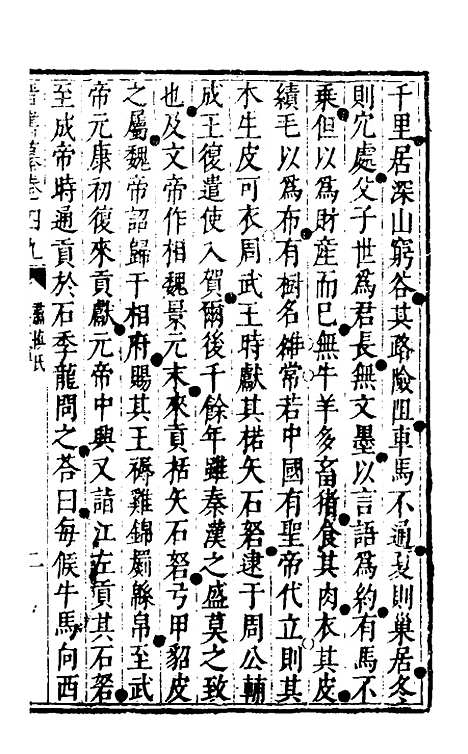 千里居深山窮谷其路險阻車馬不通夏則巢居冬
則穴處父子世爲君長無文墨以言語爲約有馬不
乗但以爲財産而已無牛羊多畜猪食其肉衣其皮
績毛以爲布有樹名雒常若中國有聖帝代立則其
木生皮可衣周武王時獻其楛矢石砮逮于周公輔
成王復遣使入賀爾後千餘年雖秦漢之盛莫之致
也及文帝作相魏景元末來貢楛矢石砮弓甲貂皮
之屬魏帝詔歸于相府賜其王褥雞錦罽緜帛至武
帝元康初復來貢獻元帝中興又詣江左貢其石砮
至成帝時通貢於石季龍問之荅曰每候牛馬向西
晉書纂卷四九 肅愼氏 二